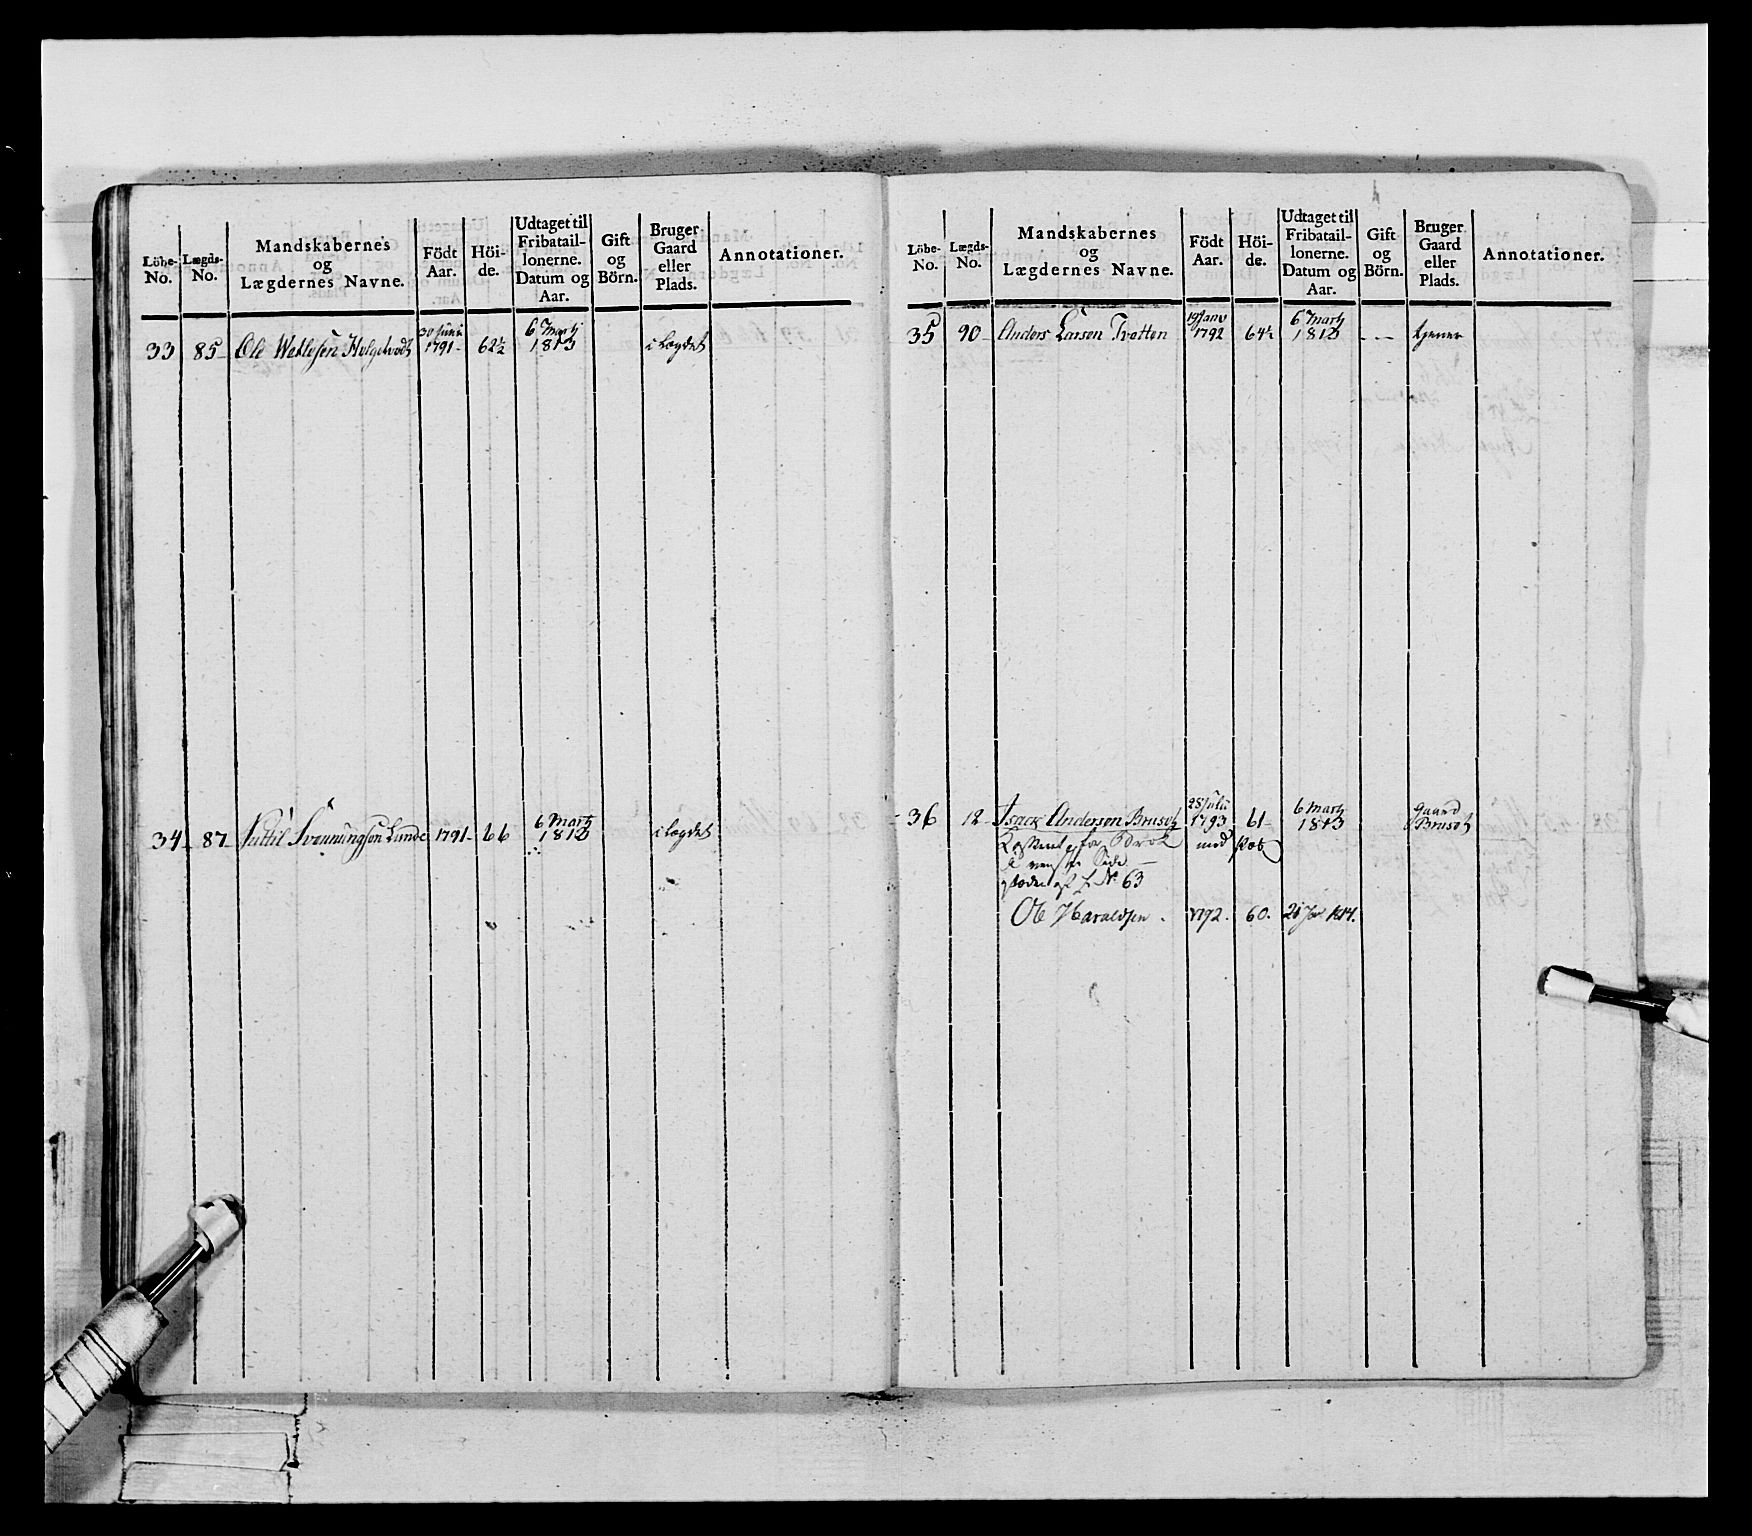 Löbe- No.
Lægds- No.
Mandskabernes og Lægdernes Navne.
Födt Aar.
Höi- de.
Udtaget til Fribatail- lonerne. Datum og Aar.
Gift og Börn.
Bruger Gaard eller Plads.
Annotationer.
33 85 Ole 30 Juni 1791 62½ 6 Marty 1813 i Lægdet
34 87 Kittil Svennungsøn Lunde 1791 66 6 Marty 1813 i Lægdet
Löbe- No.
Lægds- No.
Mandskabernes og Lægdernes Navne.
Födt Aar.
Höi- de.
Udtaget til Fribatail- lonerne. Datum og Aar.
Gift og Börn.
Bruger Gaard eller Plads.
Annotationer.
35 90 Anders Larsen Tvetten 19 Janv 1792 64½ 6 Marty 1813 - - tjener
36 12 Isack Andersen 28 Julii 1793 61 6 Marty 1813 Gaard
for Brok med
i venstre Side
af L No 63
Ole Haraldsen 1792. 60. 1814.